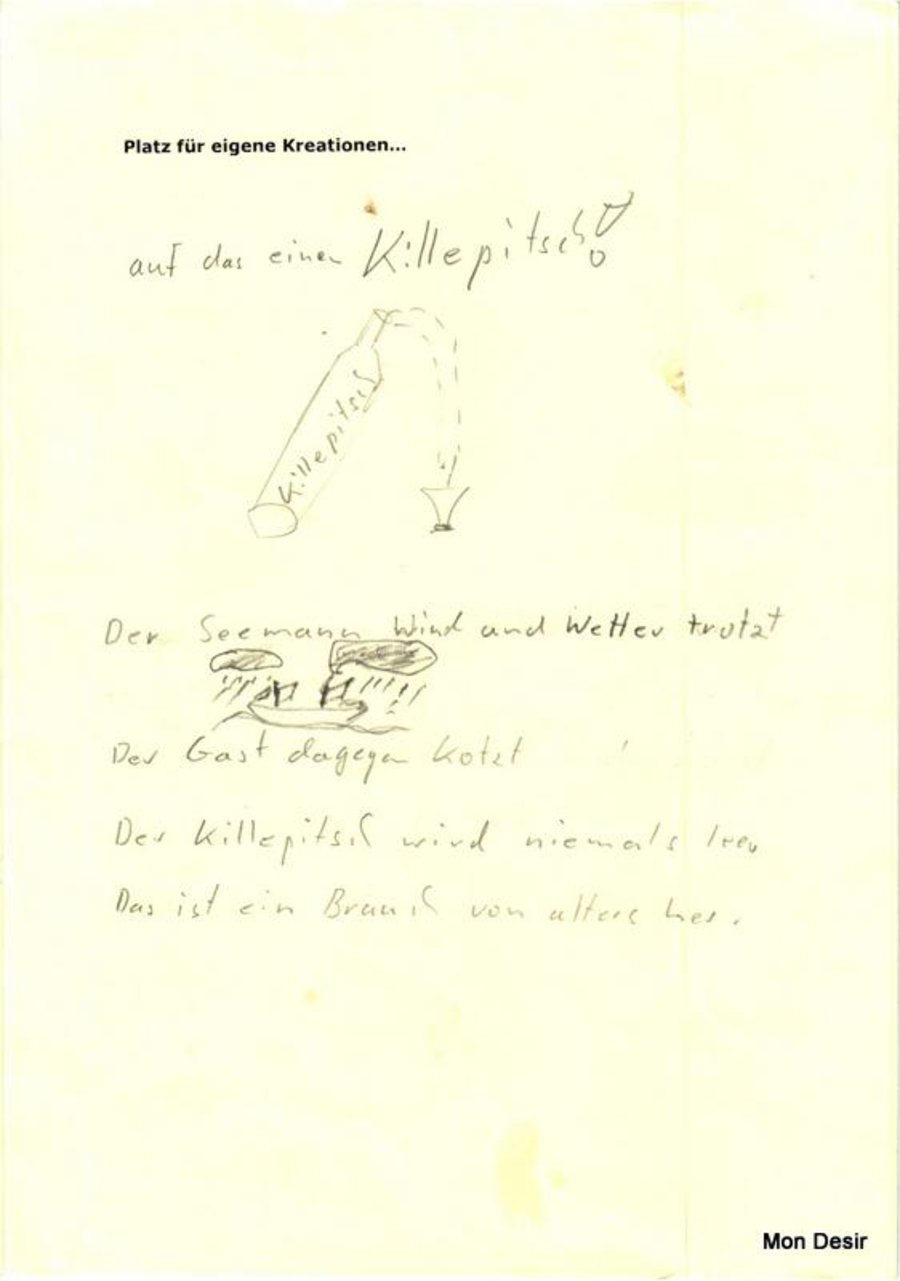 Platz für eigene Kreationen...
auf das einen Killepitsch!
Killepitsch
Der Seemann Wind und Wetter trotzt
Der Gast dagegen kotzt
Der Killepitsch wird niemals leer
Das ist ein Brauch von alters her.
Mon Desir